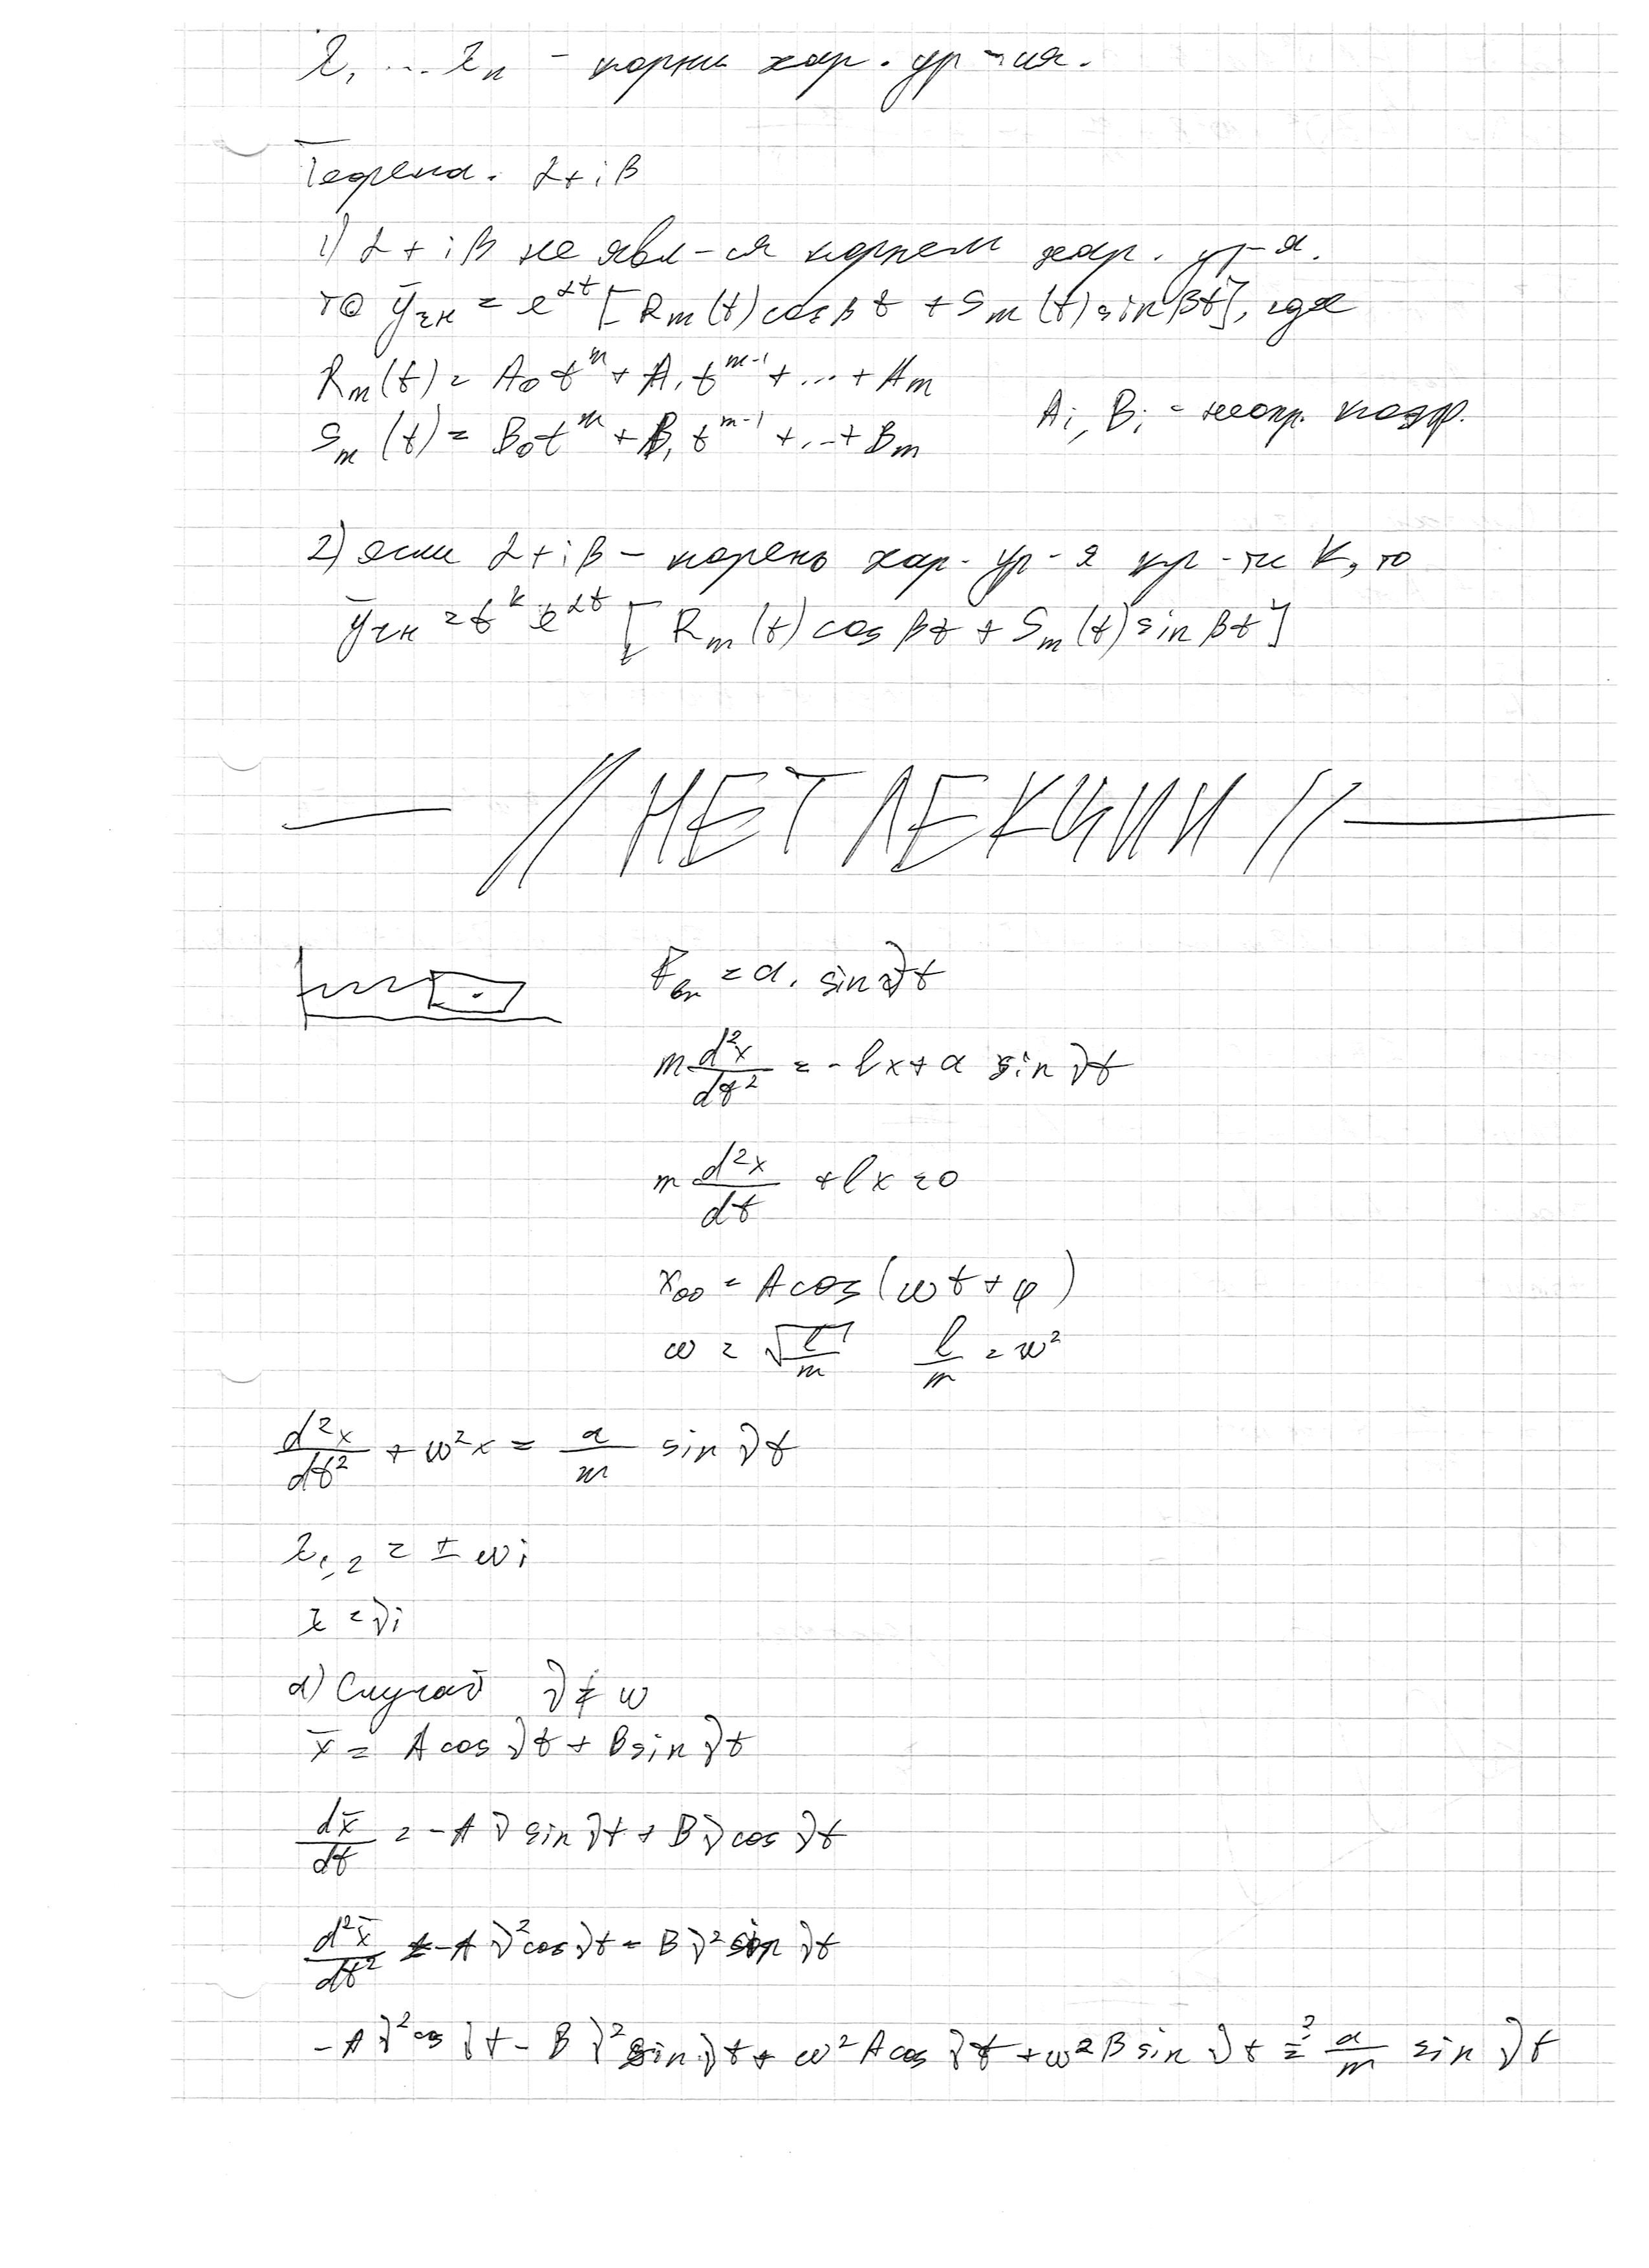 λ₁ ... λₙ – корни хар. ур-ия.
Теорема. α+iβ
1) α+iβ не явл-ся корнем хар. ур-я.
то ȳчн = e^{αt} [Rm(t)cosβt + Sm(t)sinβt], где
Rm(t) = A₀t^m + A₁t^{m-1} + ... + Am
Ai, Bi – неопр. коэф.
Sm(t) = B₀t^m + B₁t^{m-1} + ... + Bm
2) если α+iβ – корень хар. ур-я кр-ти k, то
ȳчн = t^k e^{αt} [Rm(t) cos βt + Sm(t) sin βt]
— // НЕТ ЛЕКЦИИ // —
Fвн = a · sin νt
m d²x/dt² = -lx + a sin νt
m d²x/dt + lx = 0
x₀₀ = A cos(ωt + φ)
ω = √l/m l/m = ω²
d²x/dt² + ω²x = a/m sin νt
λ₁,₂ = ± ωi
λ = νi
а) Случай ν ≠ ω
x̄ = A cos νt + B sin νt
dx̄/dt = -Aν sin νt + Bν cos νt
d²x̄/dt² = -Aν² cos νt - Bν² sin νt
-Aν² cos νt - Bν² sin νt + ω²A cos νt + ω²B sin νt ≟ a/m sin νt